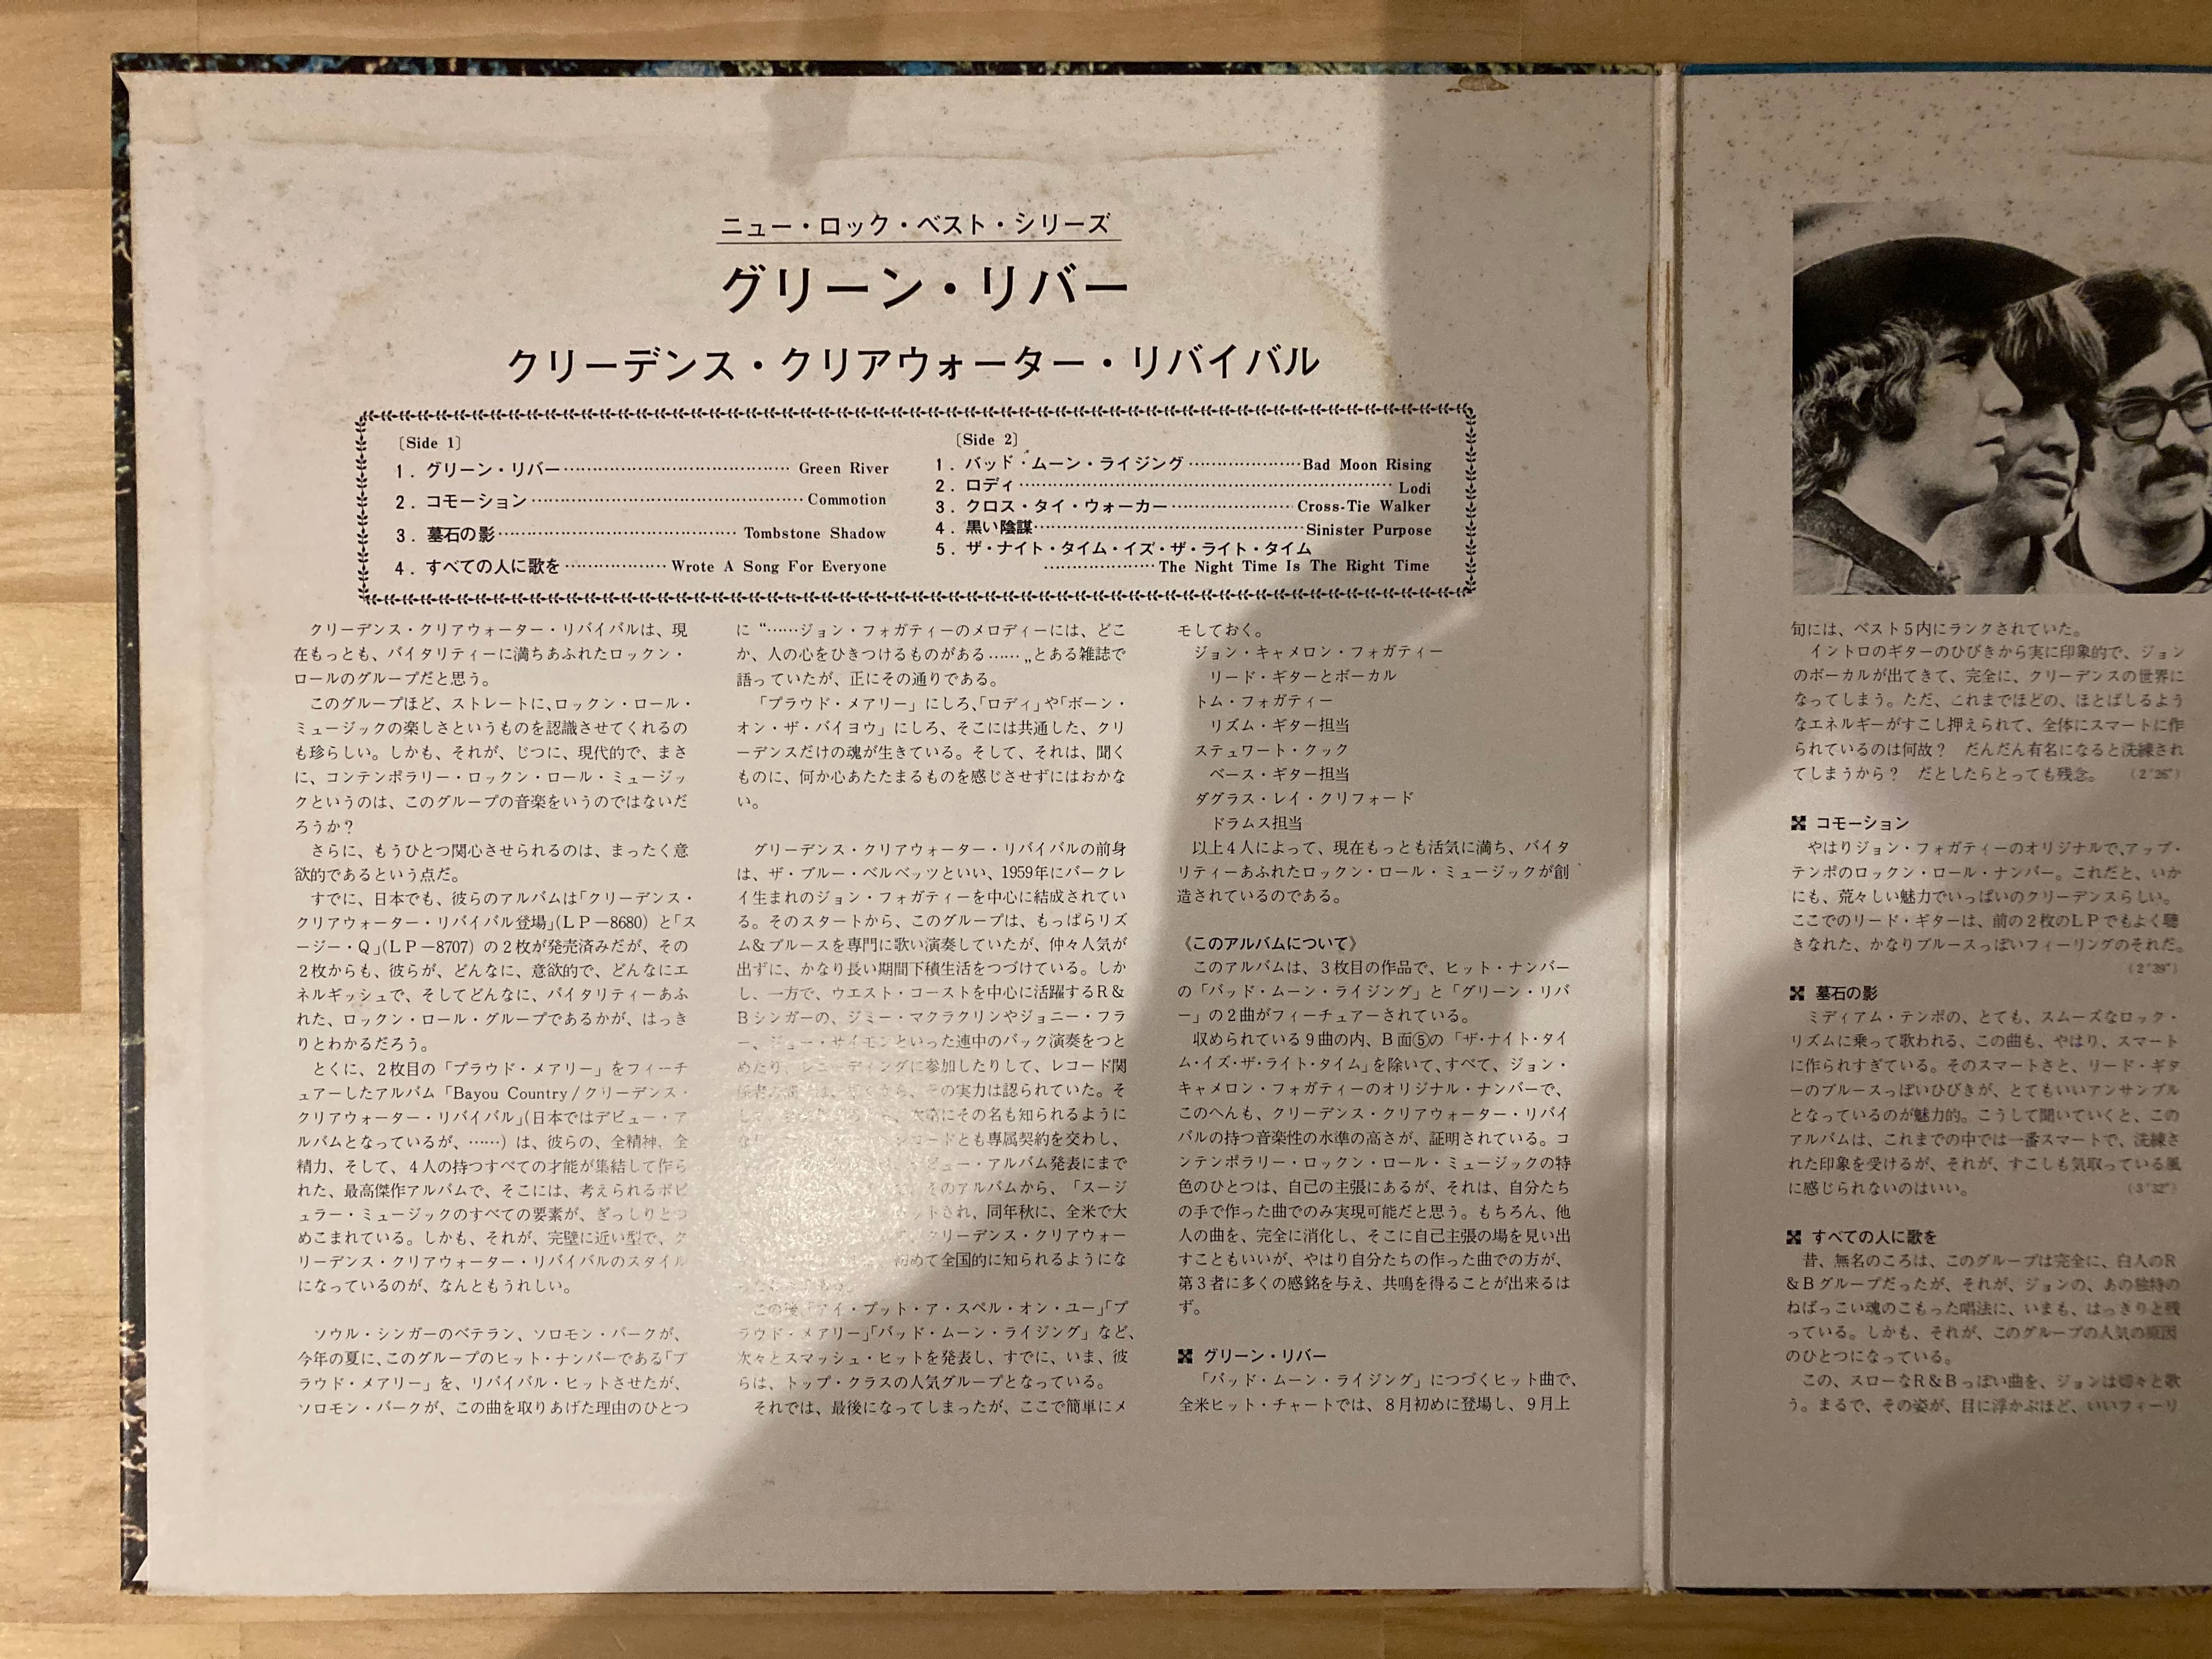 ニュー・ロック・ベスト・シリーズ
グリーン・リバー
クリーデンス・クリアウォーター・リバイバル
〔Side 1〕
1．グリーン・リバー……………………………Green River
2．コモーション……………………………Commotion
3．墓石の影……………………………Tombstone Shadow
4．すべての人に歌を………………Wrote A Song For Everyone
〔Side 2〕
1．バッド・ムーン・ライジング…………………Bad Moon Rising
2．ロディ……………………………Lodi
3．クロス・タイ・ウォーカー………………Cross-Tie Walker
4．黒い陰謀……………………………Sinister Purpose
5．ザ・ナイト・タイム・イズ・ザ・ライト・タイム
…………………The Night Time Is The Right Time
クリーデンス・クリアウォーター・リバイバルは、現
在もっとも、バイタリティーに満ちあふれたロックン・
ロールのグループだと思う。
このグループほど、ストレートに、ロックン・ロール・
ミュージックの楽しさというものを認識させてくれるの
も珍らしい。しかも、それが、じつに、現代的で、まさ
に、コンテンポラリー・ロックン・ロール・ミュージッ
クというのは、このグループの音楽をいうのではないだ
ろうか？
さらに、もうひとつ関心させられるのは、まったく意
欲的であるという点だ。
すでに、日本でも、彼らのアルバムは「クリーデンス・
クリアウォーター・リバイバル登場」(ＬＰ－8680) と「ス
ージー・Ｑ」(ＬＰ－8707) の２枚が発売済みだが、その
２枚からも、彼らが、どんなに、意欲的で、どんなにエ
ネルギッシュで、そしてどんなに、バイタリティーあふ
れた、ロックン・ロール・グループであるかが、はっき
りとわかるだろう。
とくに、２枚目の「プラウド・メアリー」をフィーチ
ュアーしたアルバム「Bayou Country / クリーデンス・
クリアウォーター・リバイバル」(日本ではデビュー・ア
ルバムとなっているが、……) は、彼らの、全精神、全
精力、そして、４人の持つすべての才能が集結して作ら
れた、最高傑作アルバムで、そこには、考えられるポピ
ュラー・ミュージックのすべての要素が、ぎっしりとつ
めこまれている。しかも、それが、完璧に近い型で、ク
リーデンス・クリアウォーター・リバイバルのスタイル
になっているのが、なんともうれしい。
ソウル・シンガーのベテラン、ソロモン・バークが、
今年の夏に、このグループのヒット・ナンバーである「プ
ラウド・メアリー」を、リバイバル・ヒットさせたが、
ソロモン・バークが、この曲を取りあげた理由のひとつ
に “……ジョン・フォガティーのメロディーには、どこ
か、人の心をひきつけるものがある……„とある雑誌で
語っていたが、正にその通りである。
「プラウド・メアリー」にしろ、「ロディ」や「ボーン・
オン・ザ・バイヨウ」にしろ、そこには共通した、クリ
ーデンスだけの魂が生きている。そして、それは、聞く
ものに、何か心あたたまるものを感じさせずにはおかな
い。
グリーデンス・クリアウォーター・リバイバルの前身
は、ザ・ブルー・ベルベッツといい、1959年にバークレ
イ生まれのジョン・フォガティーを中心に結成されてい
る。そのスタートから、このグループは、もっぱらリズ
ム＆ブルースを専門に歌い演奏していたが、仲々人気が
出ずに、かなり長い期間下積生活をつづけている。しか
し、一方で、ウエスト・コーストを中心に活躍するＲ＆
Ｂシンガーの、ジミー・マクラクリンやジョニー・フラ
ー、ジュー・サイモンといった連中のバック演奏をつと
めたり、レコーディングに参加したりして、レコード関
その実力は認られていた。そ
次第にその名も知られるように
レコードとも専属契約を交わし、
デビュー・アルバム発表にまで
そのアルバムから、「スージ
同年秋に、全米で大
クリーデンス・クリアウォー
初めて全国的に知られるようにな
この後「アイ・プット・ア・スペル・オン・ユー」「プ
ラウド・メアリー」「バッド・ムーン・ライジング」など、
次々とスマッシュ・ヒットを発表し、すでに、いま、彼
らは、トップ・クラスの人気グループとなっている。
それでは、最後になってしまったが、ここで簡単にメ
モしておく。
ジョン・キャメロン・フォガティー
リード・ギターとボーカル
トム・フォガティー
リズム・ギター担当
ステュワート・クック
ベース・ギター担当
ダグラス・レイ・クリフォード
ドラムス担当
以上４人によって、現在もっとも活気に満ち、バイタ
リティーあふれたロックン・ロール・ミュージックが創
造されているのである。
《このアルバムについて》
このアルバムは、３枚目の作品で、ヒット・ナンバー
の「バッド・ムーン・ライジング」と「グリーン・リバ
ー」の２曲がフィーチュアーされている。
収められている９曲の内、Ｂ面⑤の「ザ・ナイト・タイ
ム・イズ・ザ・ライト・タイム」を除いて、すべて、ジョン・
キャメロン・フォガティーのオリジナル・ナンバーで、
このへんも、クリーデンス・クリアウォーター・リバイ
バルの持つ音楽性の水準の高さが、証明されている。コ
ンテンポラリー・ロックン・ロール・ミュージックの特
色のひとつは、自己の主張にあるが、それは、自分たち
の手で作った曲でのみ実現可能だと思う。もちろん、他
人の曲を、完全に消化し、そこに自己主張の場を見い出
すこともいいが、やはり自分たちの作った曲での方が、
第３者に多くの感銘を与え、共鳴を得ることが出来るは
ず。
グリーン・リバー
「バッド・ムーン・ライジング」につづくヒット曲で、
全米ヒット・チャートでは、８月初めに登場し、９月上
旬には、ベスト５内にランクされていた。
イントロのギターのひびきから実に印象的で、ジョン
のボーカルが出てきて、完全に、クリーデンスの世界に
なってしまう。ただ、これまでほどの、ほとばしるよう
なエネルギーがすこし押えられて、全体にスマートに作
られているのは何故？　だんだん有名になると洗練され
てしまうから？　だとしたらとっても残念。　(2″26″)
コモーション
やはりジョン・フォガティーのオリジナルで、アップ・
テンポのロックン・ロール・ナンバー。これだと、いか
にも、荒々しい魅力でいっぱいのクリーデンスらしい。
ここでのリード・ギターは、前の２枚のＬＰでもよく聴
きなれた、かなりブルースっぽいフィーリングのそれだ。
(2″39″)
墓石の影
ミディアム・テンポの、とても、スムーズなロック・
リズムに乗って歌われる、この曲も、やはり、スマート
に作られすぎている。そのスマートさと、リード・ギタ
ーのブルースっぽいひびきが、とてもいいアンサンブル
となっているのが魅力的。こうして聞いていくと、この
アルバムは、これまでの中では一番スマートで、洗練さ
れた印象を受けるが、それが、すこしも気取っている風
に感じられないのはいい。　(3″32″)
すべての人に歌を
昔、無名のころは、このグループは完全に、白人のＲ
＆Ｂグループだったが、それが、ジョンの、あの独特の
ねばっこい魂のこもった唱法に、いまも、はっきりと残
っている。しかも、それが、このグループの人気の原因
のひとつになっている。
この、スローなＲ＆Ｂっぽい曲を、ジョンは切々と歌
う。まるで、その姿が、目に浮かぶほど、いいフィーリ